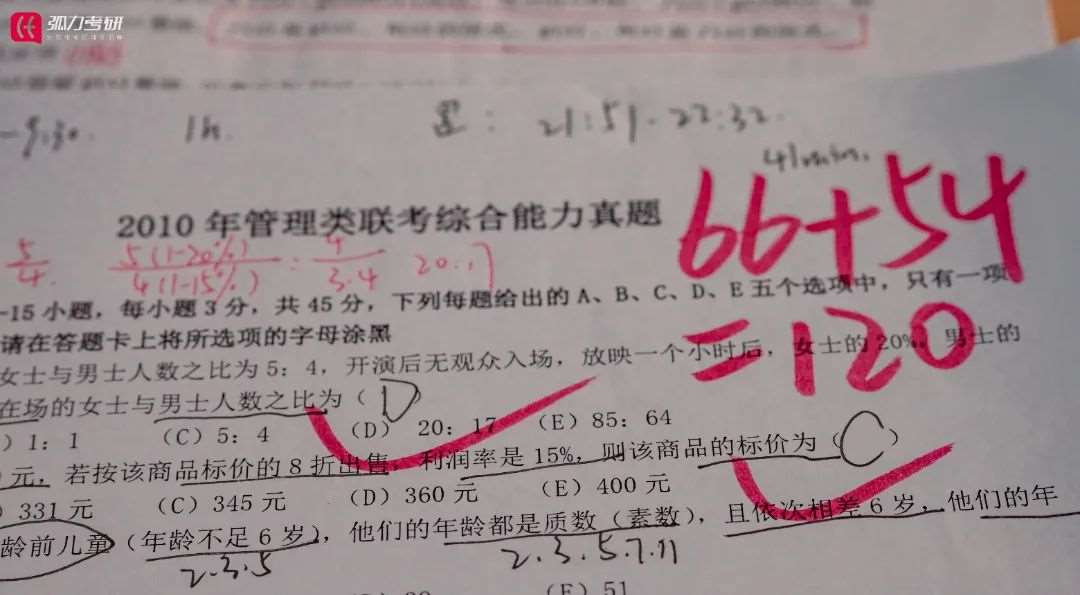 弧力考研
-9:30. 1h. 21:51-22:32.
41min.
66+54
=120
2010 年管理类联考综合能力真题
5/4 5(1-20%)/4(1-15%) : 4/3.4 20:17
-15 小题，每小题 3 分，共 45 分，下列每题给出的 A、B、C、D、E 五个选项中，只有一项
请在答题卡上将所选项的字母涂黑
女士与男士人数之比为 5：4，开演后无观众入场，放映一个小时后，女士的 20%，男士的
在场的女士与男士人数之比为（ D
）1：1 （C）5：4 （D） 20：17 （E）85：64
元，若按该商品标价的 8 折出售，利润率是 15%，则该商品的标价为（C）
）331 元 （C）345 元 （D）360 元 （E）400 元
龄前儿童（年龄不足 6 岁），他们的年龄都是质数（素数），且依次相差 6 岁，他们的年
2.3.5 2.3.5.7.11
（E）51